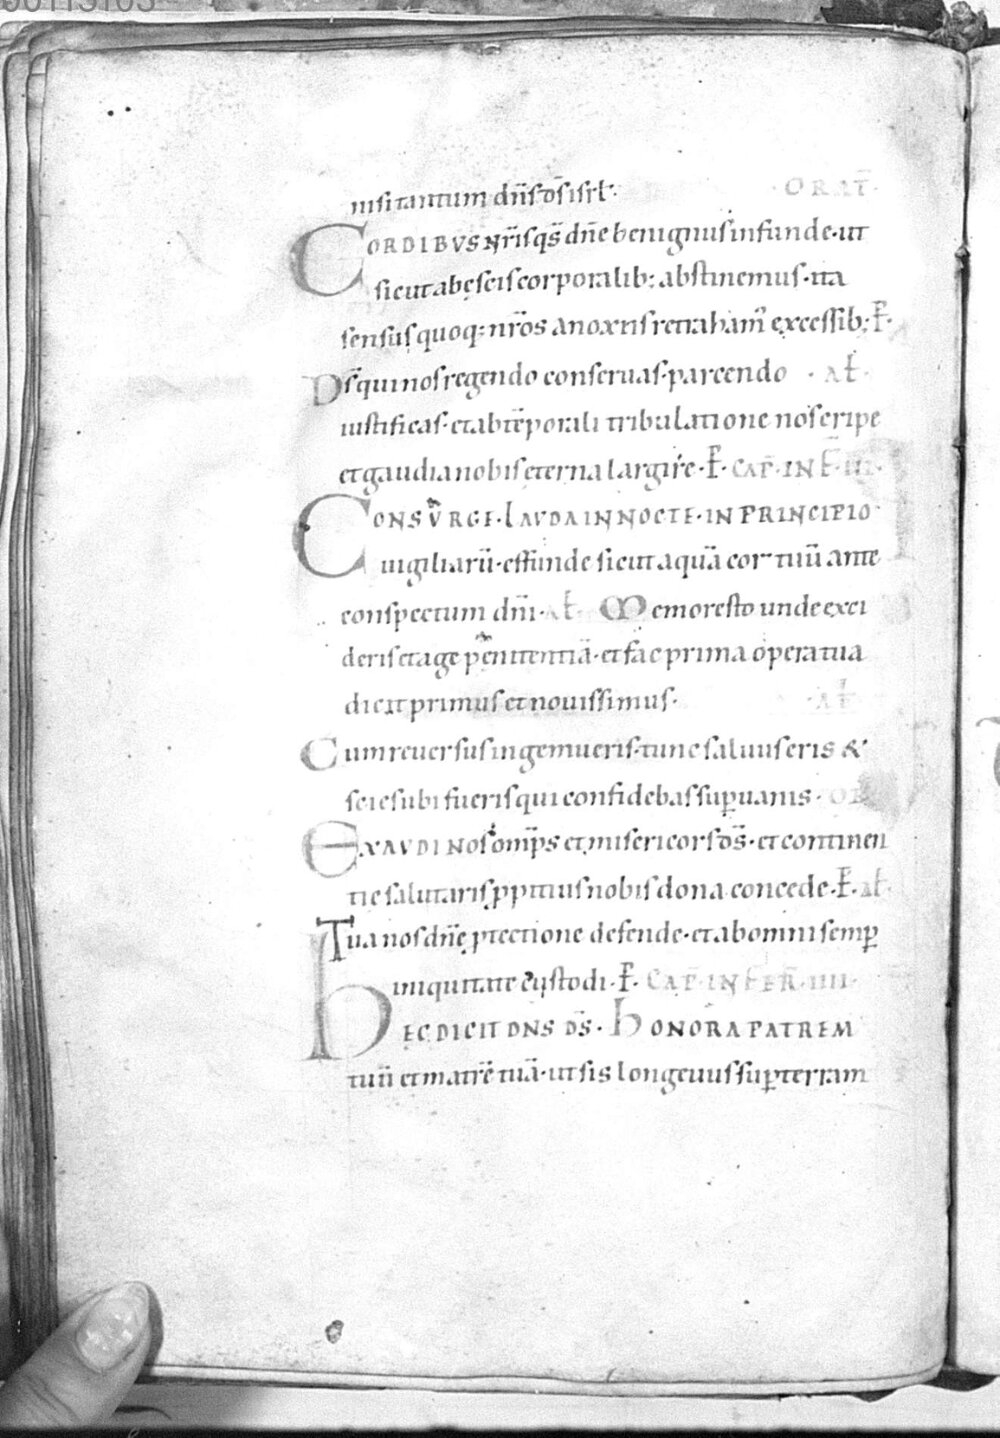 nisi tantum dn̄s ds̄ isrl. · ORAT̄ ·
CORDIBVS nr̄is qs̄ dn̄e benignus infunde · ut
sicut ab escis corporalib; abstinemus · ita
sensus quoq; nr̄os a noxiis retraham̄ excessib; P̄ ·
Ds̄ qui nos regendo conseruas · parcendo · AL̄ ·
iustificas · et a tēporali tribulatione nos eripe
et gaudia nobis eterna largire · P̄ · CAP̄ · IN F̄ · III ·
CONSVRGE · LAVDA IN NOCTE · IN PRINCIPIO
uigiliarū · effunde sicut aquā cor tuū ante
conspectum dn̄i · AL̄ Memor esto unde exci
deris et age penitentiā · et fac prima opera tua
dicit primus et nouissimus · AL̄
Cum reuersus ingemueris · tunc saluus eris &
scies ubi fueris qui confidebas sup uanis · OR
EXAVDI NOS omps et misericors ds̄ · et continen
tie salutaris ppitius nobis dona concede · P̄ · AL̄ ·
Tua nos dn̄e ptectione defende · et ab omni semp
iniquitate custodi · P̄ · CAP̄ · IN FER̄ · IIII ·
HEC DICIT DNS DS̄ · HONORA PATREM
tuū et matrē tuā · ut sis longeuus sup terram